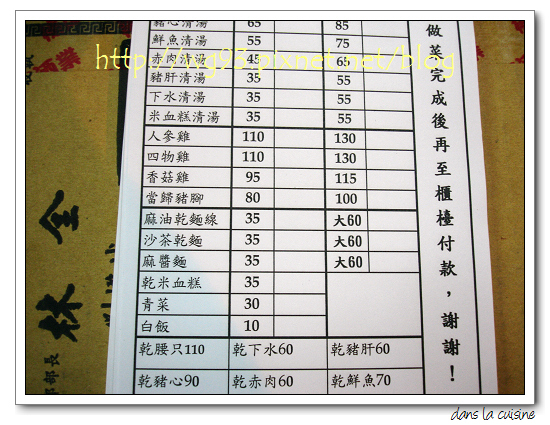 豬心清湯 65 85
鮮魚清湯 55 75
赤肉清湯 45 65
豬肝清湯 35 55
下水清湯 35 55
米血糕清湯 35 55
人參雞 110 130
四物雞 110 130
香菇雞 95 115
當歸豬腳 80 100
麻油乾麵線 35 大60
沙茶乾麵 35 大60
麻醬麵 35 大60
乾米血糕 35
青菜 30
白飯 10
乾腰只110 乾下水60 乾豬肝60
乾豬心90 乾赤肉60 乾鮮魚70
做菜完成後再至櫃檯付款，謝謝！
金林
部長
dans la cuisine